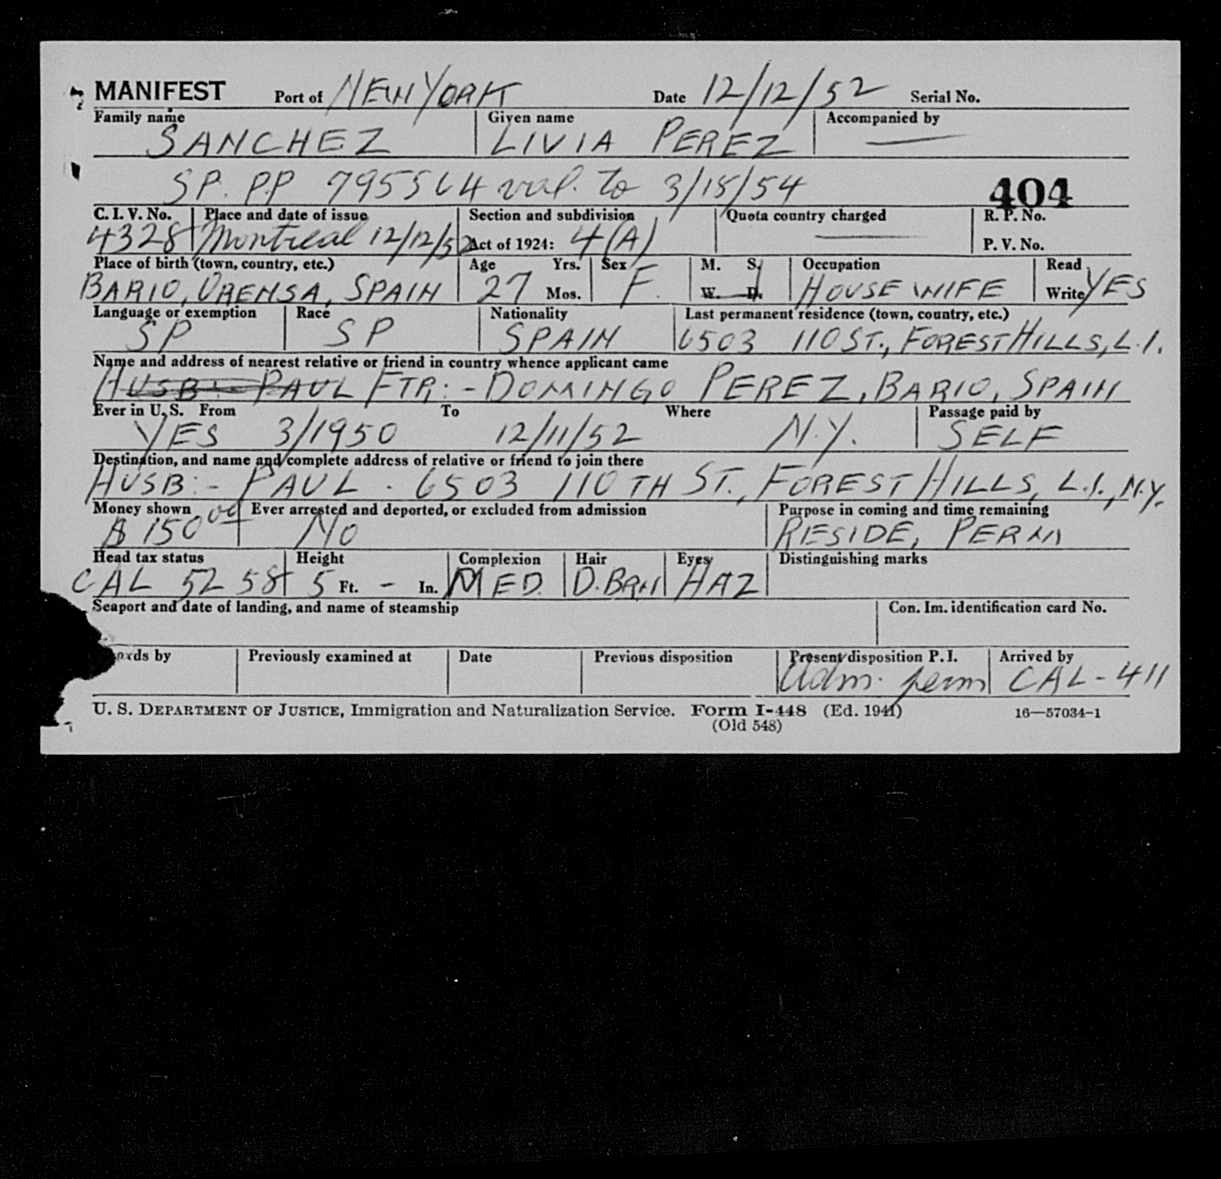 MANIFEST Port of NEW YORK Date 12/12/52 Serial No.
Family name Given name Accompanied by
SANCHEZ LIVIA PEREZ —
SP. P.P 795564 val. to 3/15/54 404
C. I. V. No. Place and date of issue Section and subdivision Quota country charged R. P. No.
4328 Montreal 12/12/52 Act of 1924: 4(A) — P. V. No.
Place of birth (town, country, etc.) Age Yrs. Sex M. S. Occupation Read
BARIO, ORENSA, SPAIN 27 Mos. F. W. D. HOUSEWIFE Write YES
Language or exemption Race Nationality Last permanent residence (town, country, etc.)
SP SP SPAIN 6503 110 ST., FOREST HILLS, L.I.
Name and address of nearest relative or friend in country whence applicant came
HUSB:- PAUL FTR:- DOMINGO PEREZ, BARIO, SPAIN
Ever in U. S. From To Where Passage paid by
YES 3/1950 12/11/52 N.Y. SELF
Destination, and name and complete address of relative or friend to join there
HUSB:- PAUL - 6503 110TH ST., FOREST HILLS, L.I., N.Y.
Money shown Ever arrested and deported, or excluded from admission Purpose in coming and time remaining
$ 150 00 NO RESIDE, PERM
Head tax status Height Complexion Hair Eyes Distinguishing marks
CAL 52 58 5 Ft. - In. MED. D. BRN HAZ
Seaport and date of landing, and name of steamship Con. Im. identification card No.
ords by Previously examined at Date Previous disposition Present disposition P. I. Arrived by
Adm. perm CAL-411
U. S. DEPARTMENT OF JUSTICE, Immigration and Naturalization Service. Form I-448 (Ed. 1941) 16—57034-1
(Old 548)